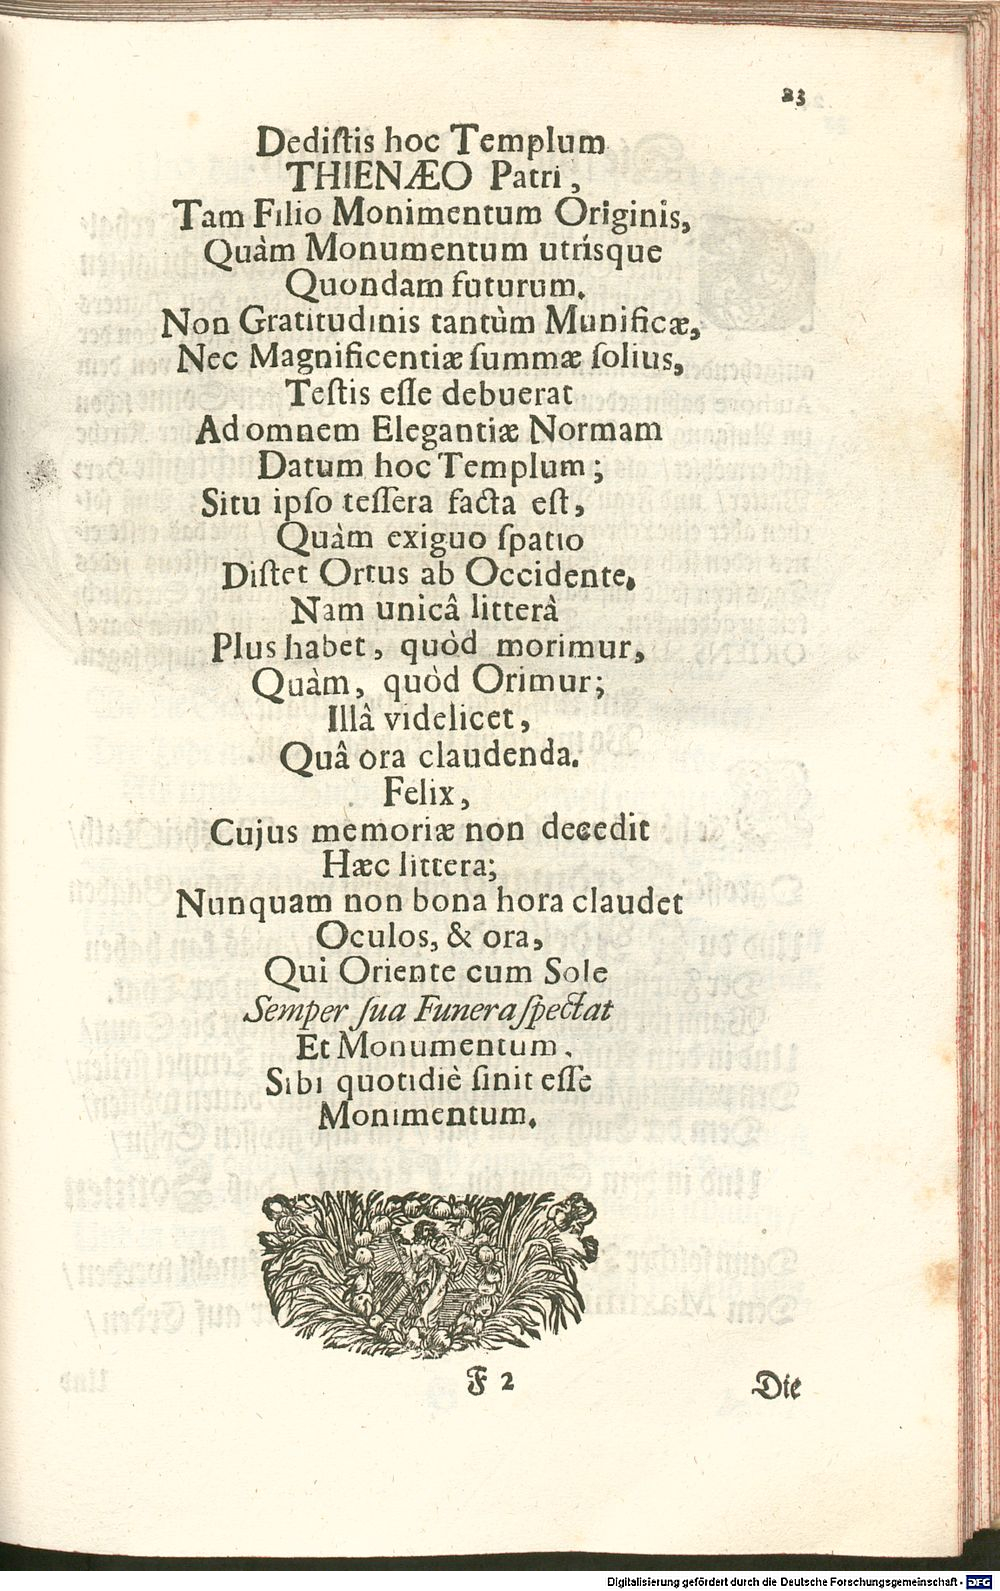 23
Dediſtis hoc Templum
THIENÆO Patri,
Tam Filio Monimentum Originis,
Quàm Monumentum utrisque
Quondam futurum.
Non Gratitudinis tantùm Munificæ,
Nec Magnificentiæ ſummæ ſolius,
Teſtis eſſe debuerat
Ad omnem Elegantiæ Normam
Datum hoc Templum;
Situ ipſo teſſera facta eſt,
Quàm exiguo ſpatio
Diſtet Ortus ab Occidente.
Nam unicâ litterà
Plus habet, quòd morimur,
Quàm, quòd Orimur;
Illâ videlicet,
Quâ ora claudenda.
Felix,
Cujus memoriæ non decedit
Hæc littera;
Nunquam non bona hora claudet
Oculos, & ora,
Qui Oriente cum Sole
Semper ſua Funera ſpectat
Et Monumentum.
Sibi quotidiè ſinit eſſe
Monimentum.
F 2
Die
Digitalisierung gefördert durch die Deutsche Forschungsgemeinschaft - DFG